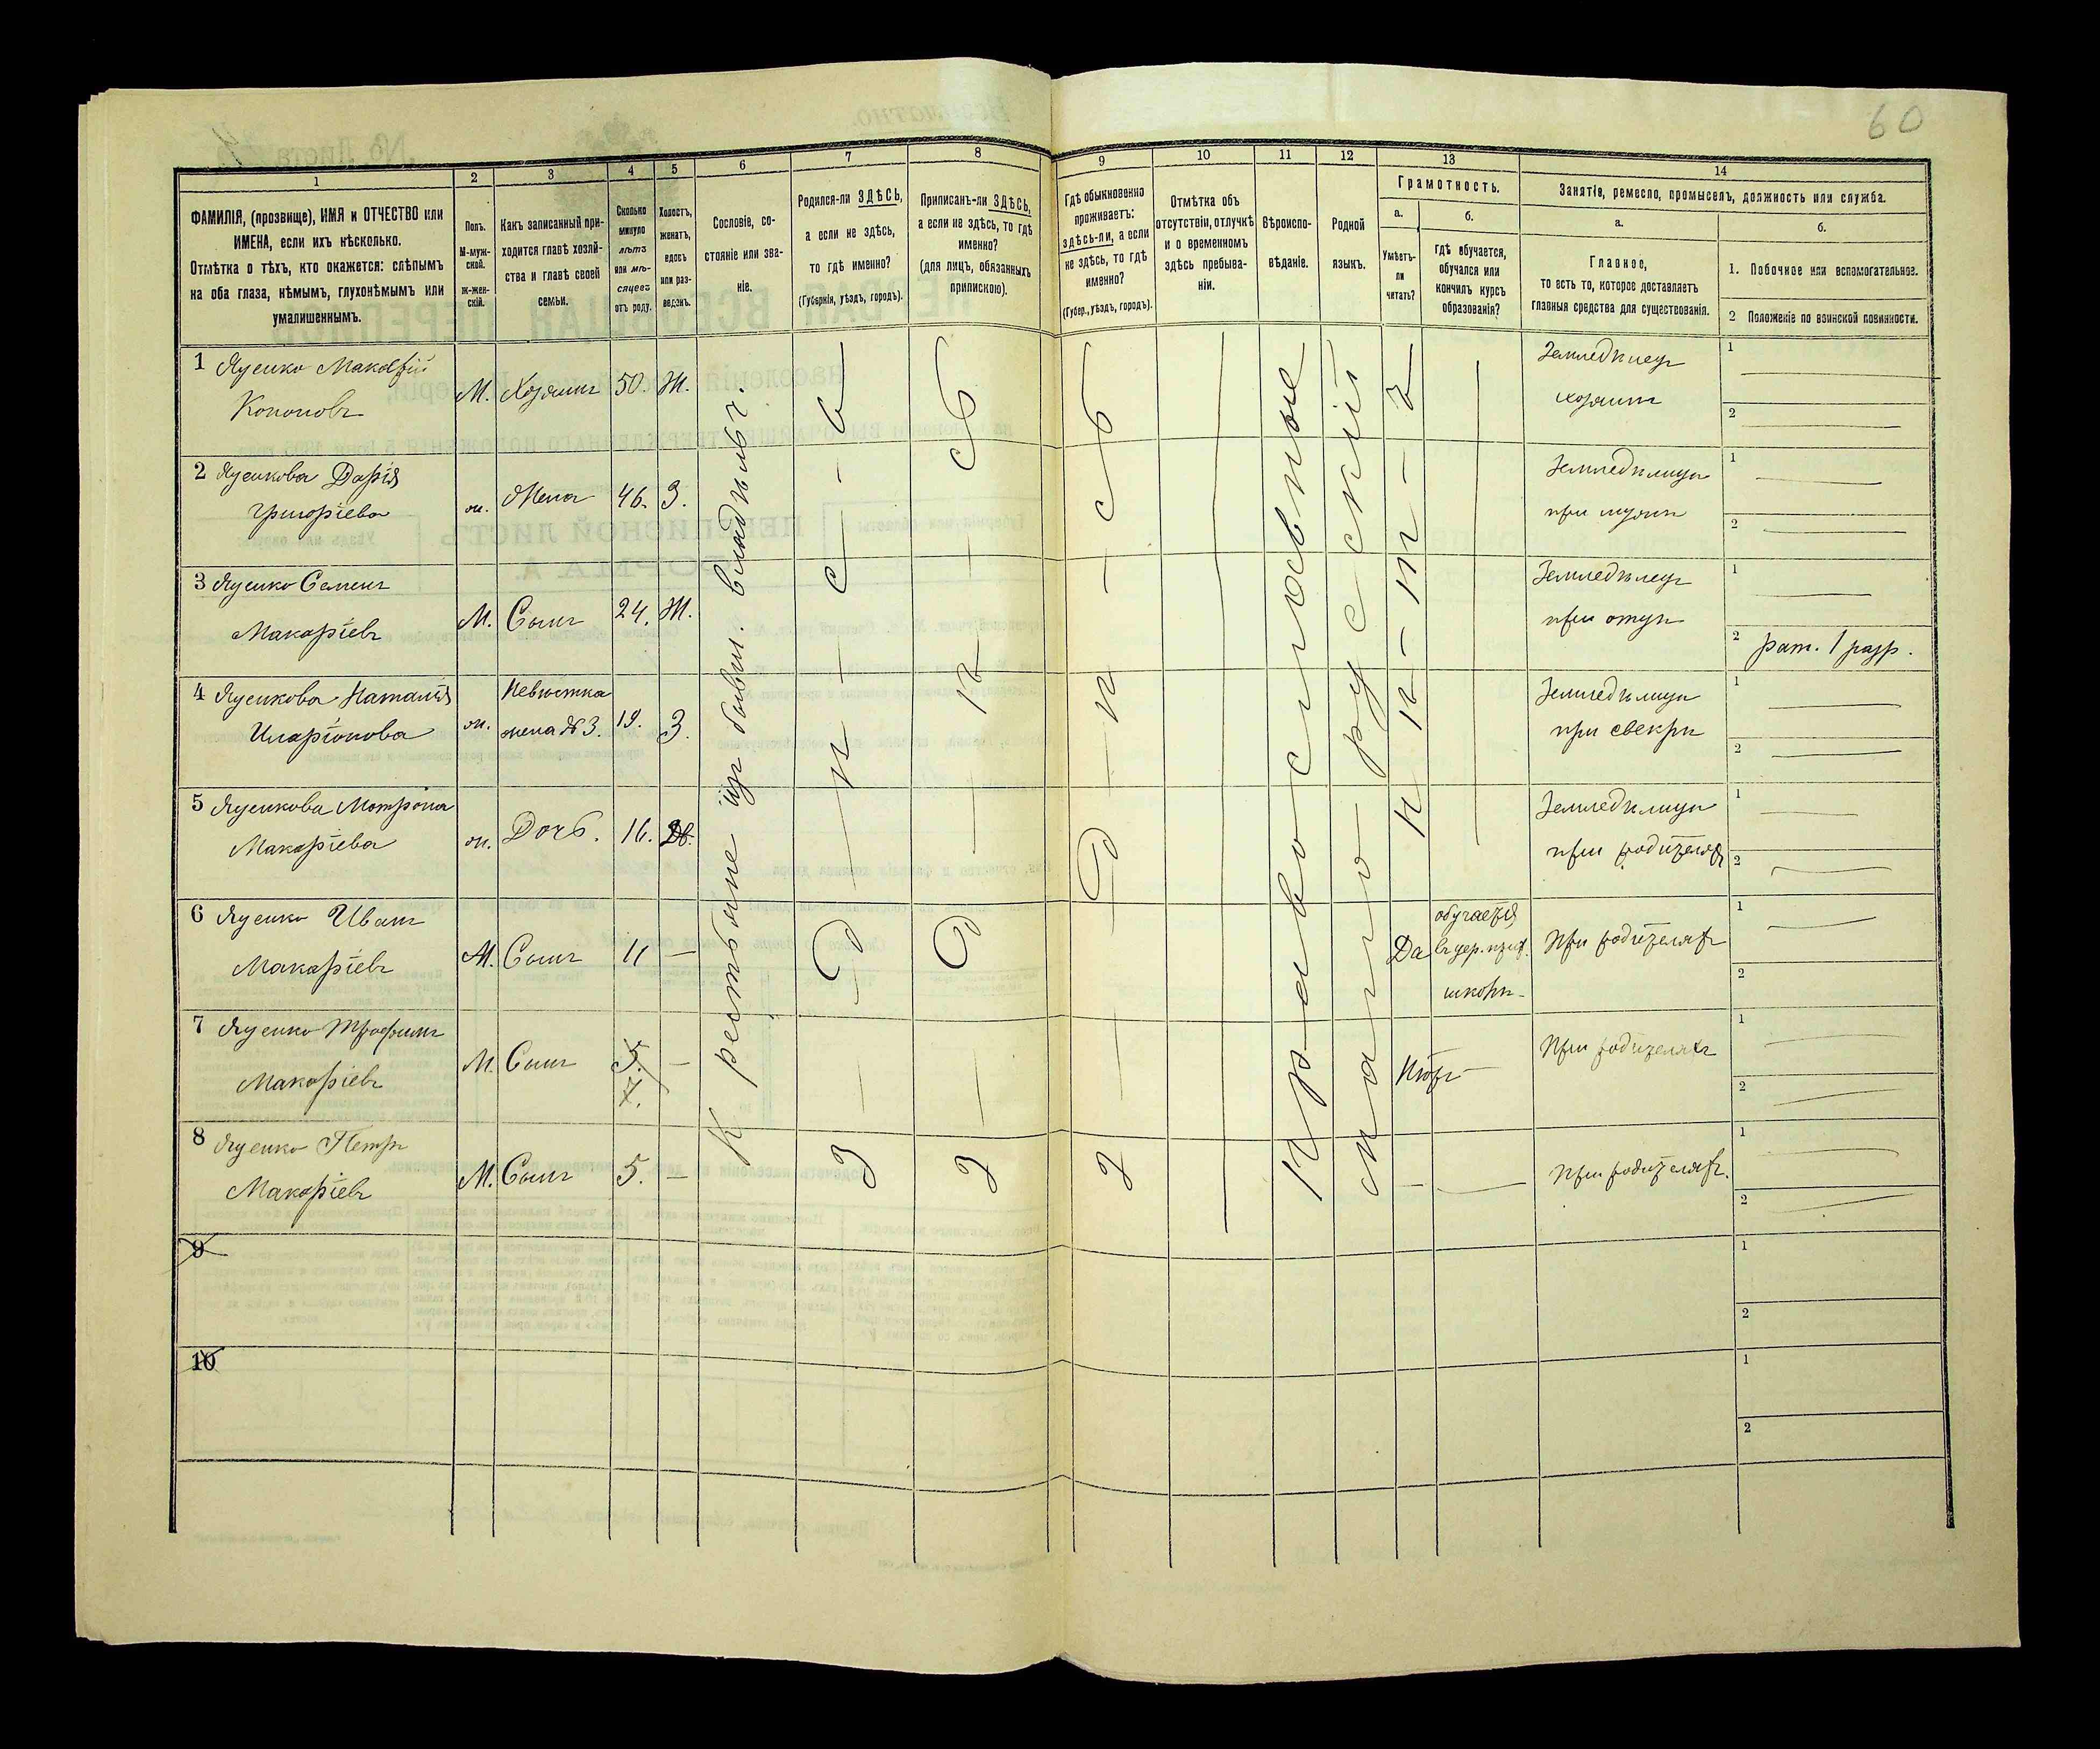 60
1
2
3
4
5
6
7
8
9
10
11
12
13
14
ФАМИЛІЯ, (прозвище), ИМЯ и ОТЧЕСТВО или
ИМЕНА, если ихъ нѣсколько.
Отмѣтка о тѣхъ, кто окажется: слѣпымъ
на оба глаза, нѣмымъ, глухонѣмымъ или
умалишеннымъ.
Полъ.
М-муж-
ской.
Ж-жен-
скій.
Какъ записанный при-
ходится главѣ хозяй-
ства и главѣ своей
семьи.
Сколько
минуло
лѣтъ
или мѣ-
сяцевъ
отъ роду.
Холостъ,
женатъ,
вдовъ
или раз-
веденъ.
Сословіе, со-
стояніе или зва-
ніе.
Родился-ли ЗДѢСЬ,
а если не здѣсь,
то гдѣ именно?
(Губернія, уѣздъ, городъ).
Приписанъ-ли ЗДѢСЬ,
а если не здѣсь, то гдѣ
именно?
(для лицъ, обязанныхъ
припискою).
Гдѣ обыкновенно
проживаетъ:
здѣсь-ли, а если
не здѣсь, то гдѣ
именно?
(Губер., уѣздъ, городъ).
Отмѣтка объ
отсутствіи, отлучкѣ
и о временномъ
здѣсь пребыва-
ніи.
Вѣроиспо-
вѣданіе.
Родной
языкъ.
Грамотность.
а.
Умѣетъ-
ли
читать?
б.
гдѣ обучается,
обучался или
кончилъ курсъ
образованія?
Занятіе, ремесло, промыселъ, должность или служба.
а.
Главное,
то есть то, которое доставляетъ
главныя средства для существованія.
б.
1. Побочное или вспомогательное.
2 Положеніе по воинской повинности.
1 Яценко Макарій
Кононовъ
М. Хозяинъ 50. Ж.
Земледѣлецъ
хозяинъ
1
2
2 Яценкова Дарія
Григоріева
ж. Жена 46. З.
Земледѣлица
при мужѣ
1
2
3 Яценко Семенъ
Макаріевъ
М. Сынъ 24. Ж.
Земледѣлецъ
при отцѣ
1
2 рат. 1 разр.
4 Яценкова Наталія
Иларіонова
ж. Невѣстка
жена № 3. 19. З.
Земледѣлица
при свекрѣ
1
2
5 Яценкова Мотрона
Макаріева
ж. Дочь. 16. Дв.
Земледѣлица
при родителяхъ
1
2
6 Яценко Иванъ
Макаріевъ
М. Сынъ 11 —
Да обучается
въ цер. прих.
школѣ
При родителяхъ
1
2
7 Яценко Трофимъ
Макаріевъ
М. Сынъ 5. 7. —
Нѣтъ —
При родителяхъ
1
2
8 Яценко Петръ
Макаріевъ
М. Сынъ 5. —
При родителяхъ.
1
2
9
1
2
10
1
2
Крестьяне изъ бывш. владѣльч.
З д ѣ с ь
З д ѣ с ь
З д ѣ с ь
Православные
Малорусскій
Н ѣ т ъ